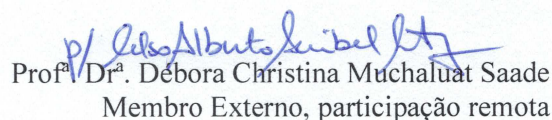 p/ Celso Alberto Saibel
Profª. Drª. Débora Christina Muchaluat Saade
Membro Externo, participação remota